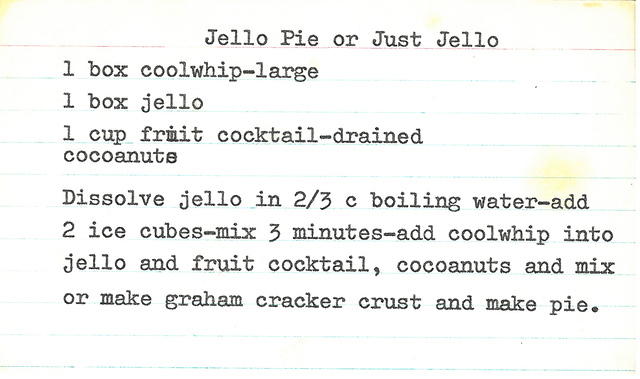 Jello Pie or Just Jello
1 box coolwhip-large
1 box jello
1 cup fruit cocktail-drained
cocoanuts
Dissolve jello in 2/3 c boiling water-add
2 ice cubes-mix 3 minutes-add coolwhip into
jello and fruit cocktail, cocoanuts and mix
or make graham cracker crust and make pie.